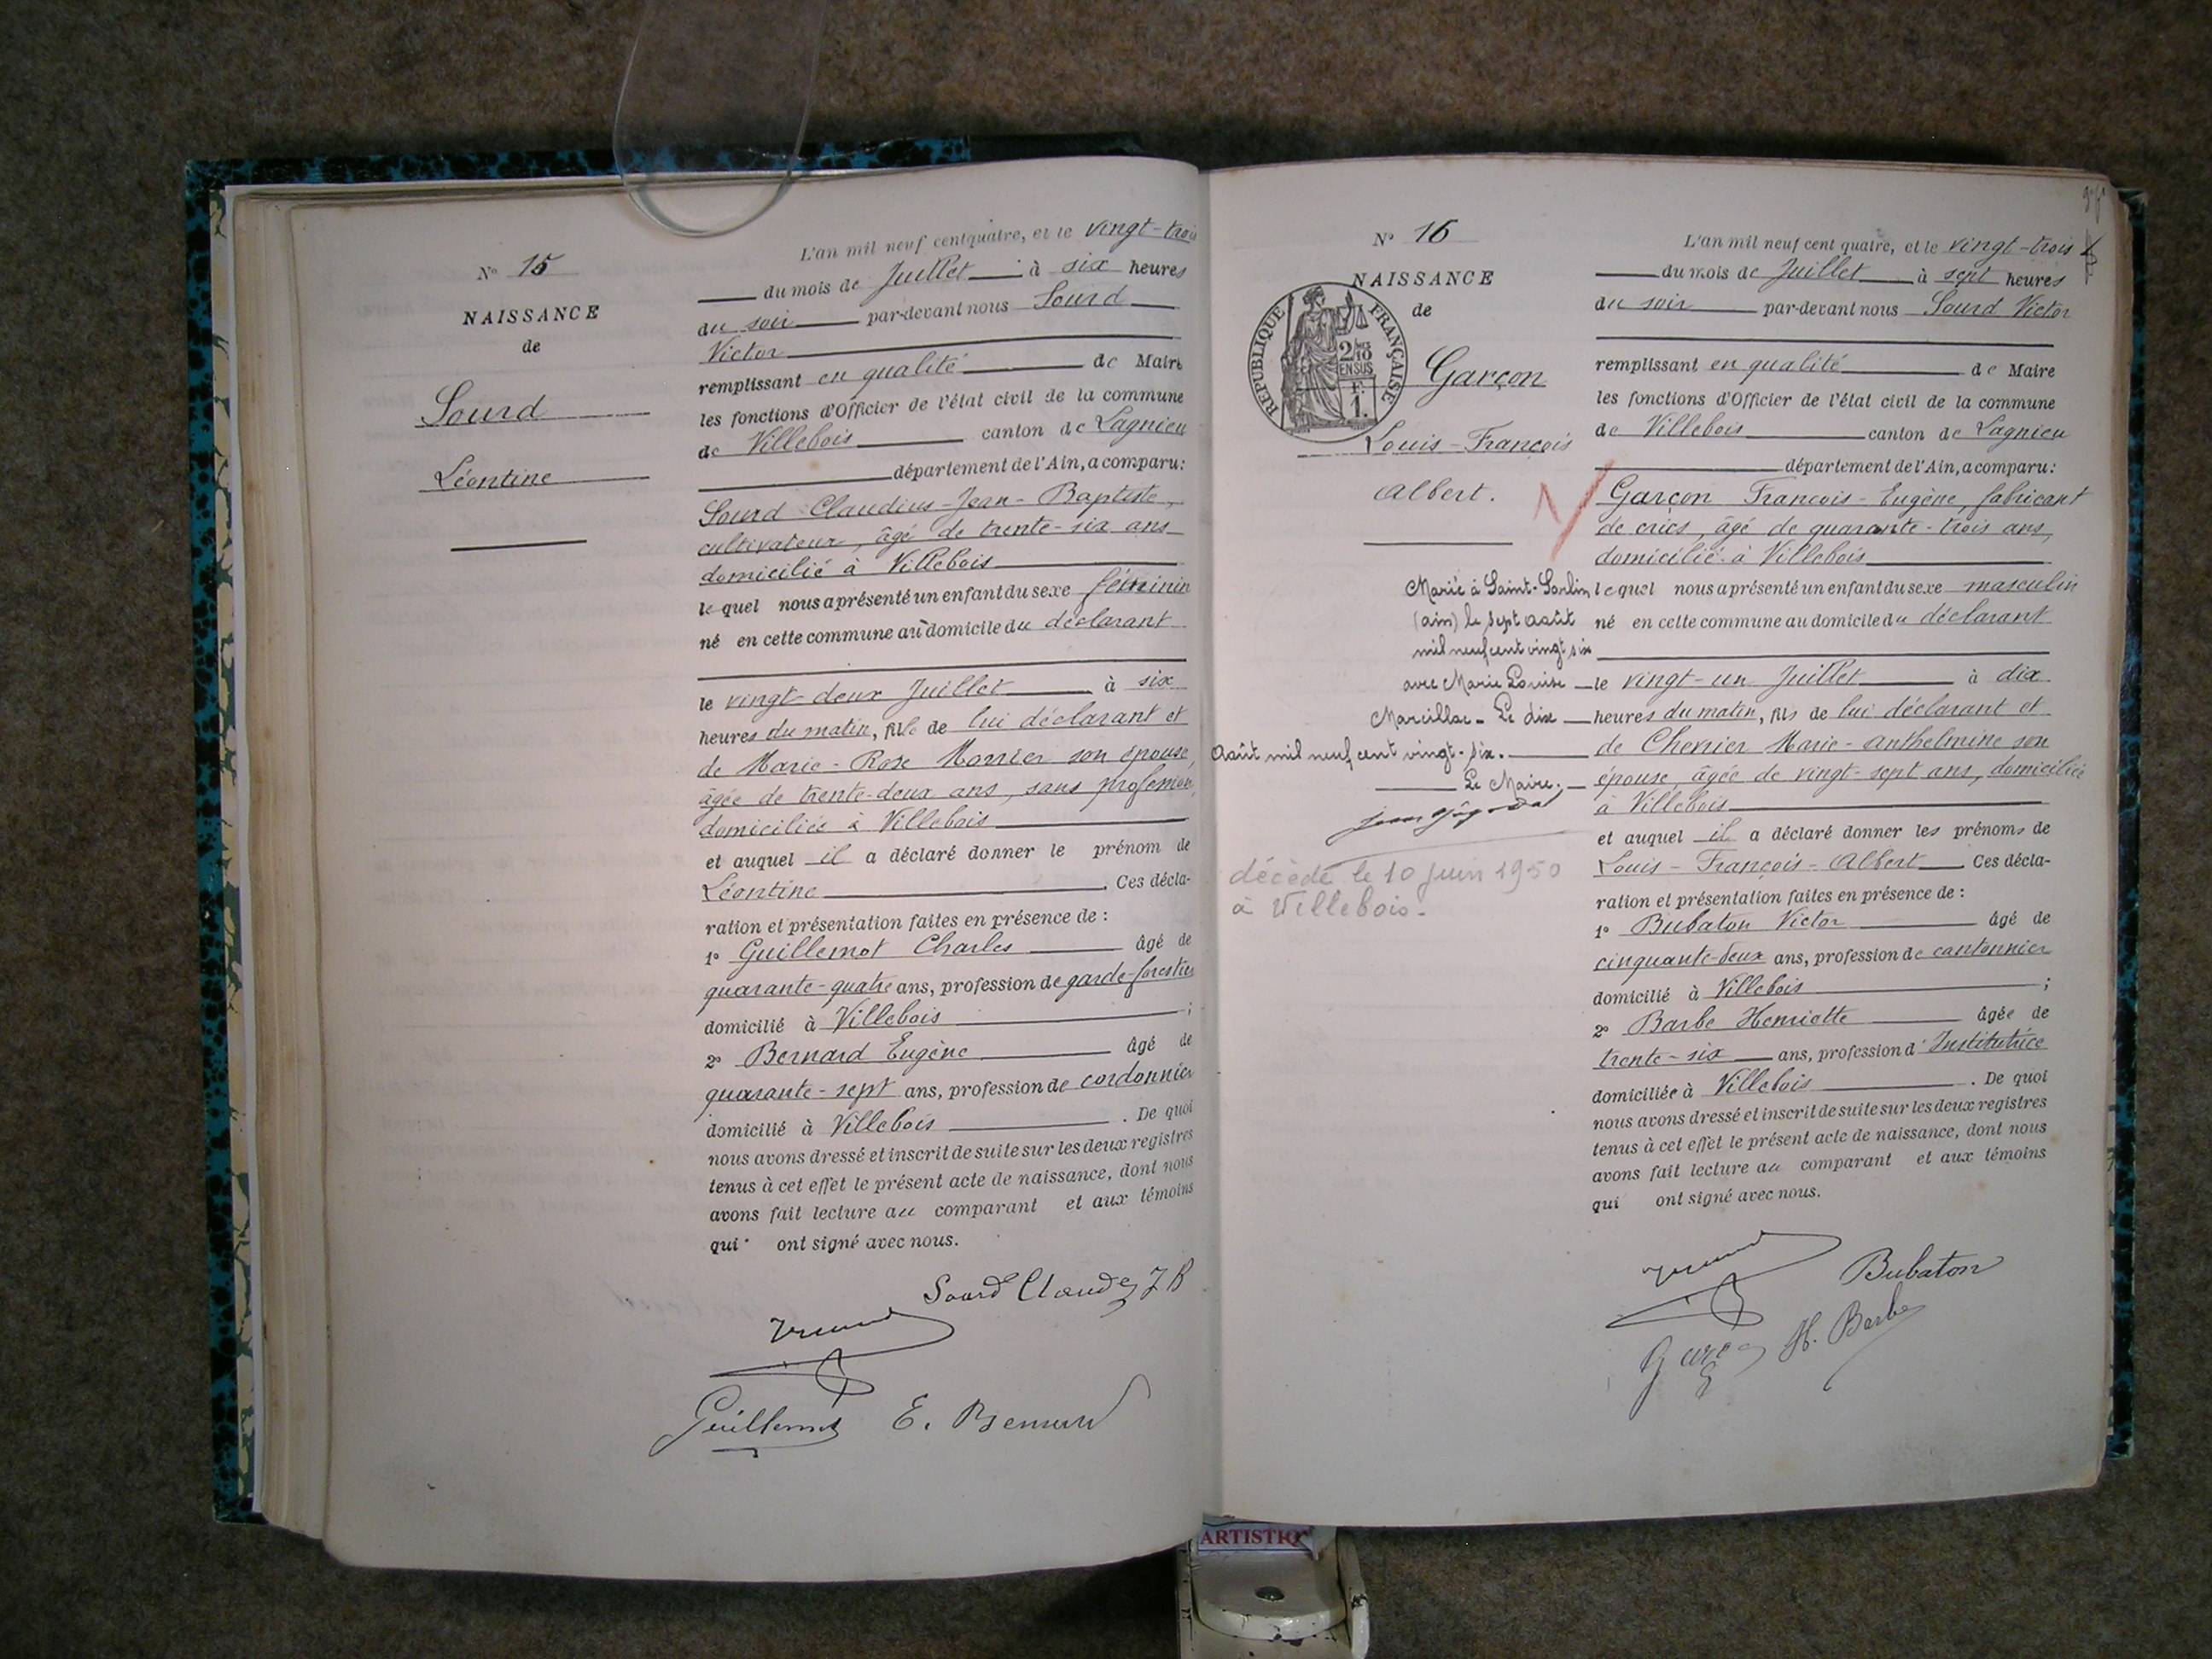 N° 15
NAISSANCE
de
Sourd
Léontine
L'an mil neuf cent quatre, et le vingt-trois
du mois de Juillet à six heures
du soir par-devant nous Sourd
Victor
remplissant en qualité de Maire
les fonctions d'Officier de l'état civil de la commune
de Villebois canton de Lagnieu
département de l'Ain, a comparu:
Sourd Claudius-Jean-Baptiste,
cultivateur, âgé de trente-six ans
domicilié à Villebois
le quel nous a présenté un enfant du sexe féminin
né en cette commune au domicile du déclarant
le vingt-deux Juillet à six
heures du matin, fille de lui déclarant et
de Marie-Rose Monier son épouse,
âgée de trente-deux ans, sans profession,
domiciliés à Villebois
et auquel il a déclaré donner le prénom de
Léontine. Ces décla-
ration et présentation faites en présence de :
1° Guillemot Charles âgé de
quarante-quatre ans, profession de garde-forestier
domicilié à Villebois ;
2° Bernard Eugène âgé de
quarante-sept ans, profession de cordonnier
domicilié à Villebois . De quoi
nous avons dressé et inscrit de suite sur les deux registres
tenus à cet effet le présent acte de naissance, dont nous
avons fait lecture au comparant et aux témoins
qui ont signé avec nous.
Sourd Claude J B
Guillemot E. Bernard
N° 16
NAISSANCE
de
REPUBLIQUE FRANÇAISE
2/10
EN SUS
F.
1.
Garçon
Louis-François
Albert.
Marié à Saint-Sorlin
(ain) le sept août
mil neuf cent vingt six
avec Marie Louise
Marcillac - Le dix
Août mil neuf cent vingt-six.
Le Maire,
décédé le 10 juin 1950
à Villebois.
L'an mil neuf cent quatre, et le vingt-trois
du mois de Juillet à sept heures
du soir par-devant nous Sourd Victor
remplissant en qualité de Maire
les fonctions d'Officier de l'état civil de la commune
de Villebois canton de Lagnieu
département de l'Ain, a comparu:
Garçon François-Eugène, fabricant
de crics, âgé de quarante-trois ans,
domicilié à Villebois
le quel nous a présenté un enfant du sexe masculin
né en cette commune au domicile du déclarant
le vingt-un Juillet à dix
heures du matin, fils de lui déclarant et
de Chenier Marie-Anthelmine son
épouse, âgée de vingt-sept ans, domiciliée
à Villebois
et auquel il a déclaré donner les prénoms de
Louis-François-Albert. Ces décla-
ration et présentation faites en présence de :
1° Bubaton Victor âgé de
cinquante-deux ans, profession de cantonnier
domicilié à Villebois ;
2° Barbe Henriette âgée de
trente-six ans, profession d'Institutrice
domiciliée à Villebois . De quoi
nous avons dressé et inscrit de suite sur les deux registres
tenus à cet effet le présent acte de naissance, dont nous
avons fait lecture au comparant et aux témoins
qui ont signé avec nous.
Bubaton
Garçon H. Barbe
ARTISTIQ